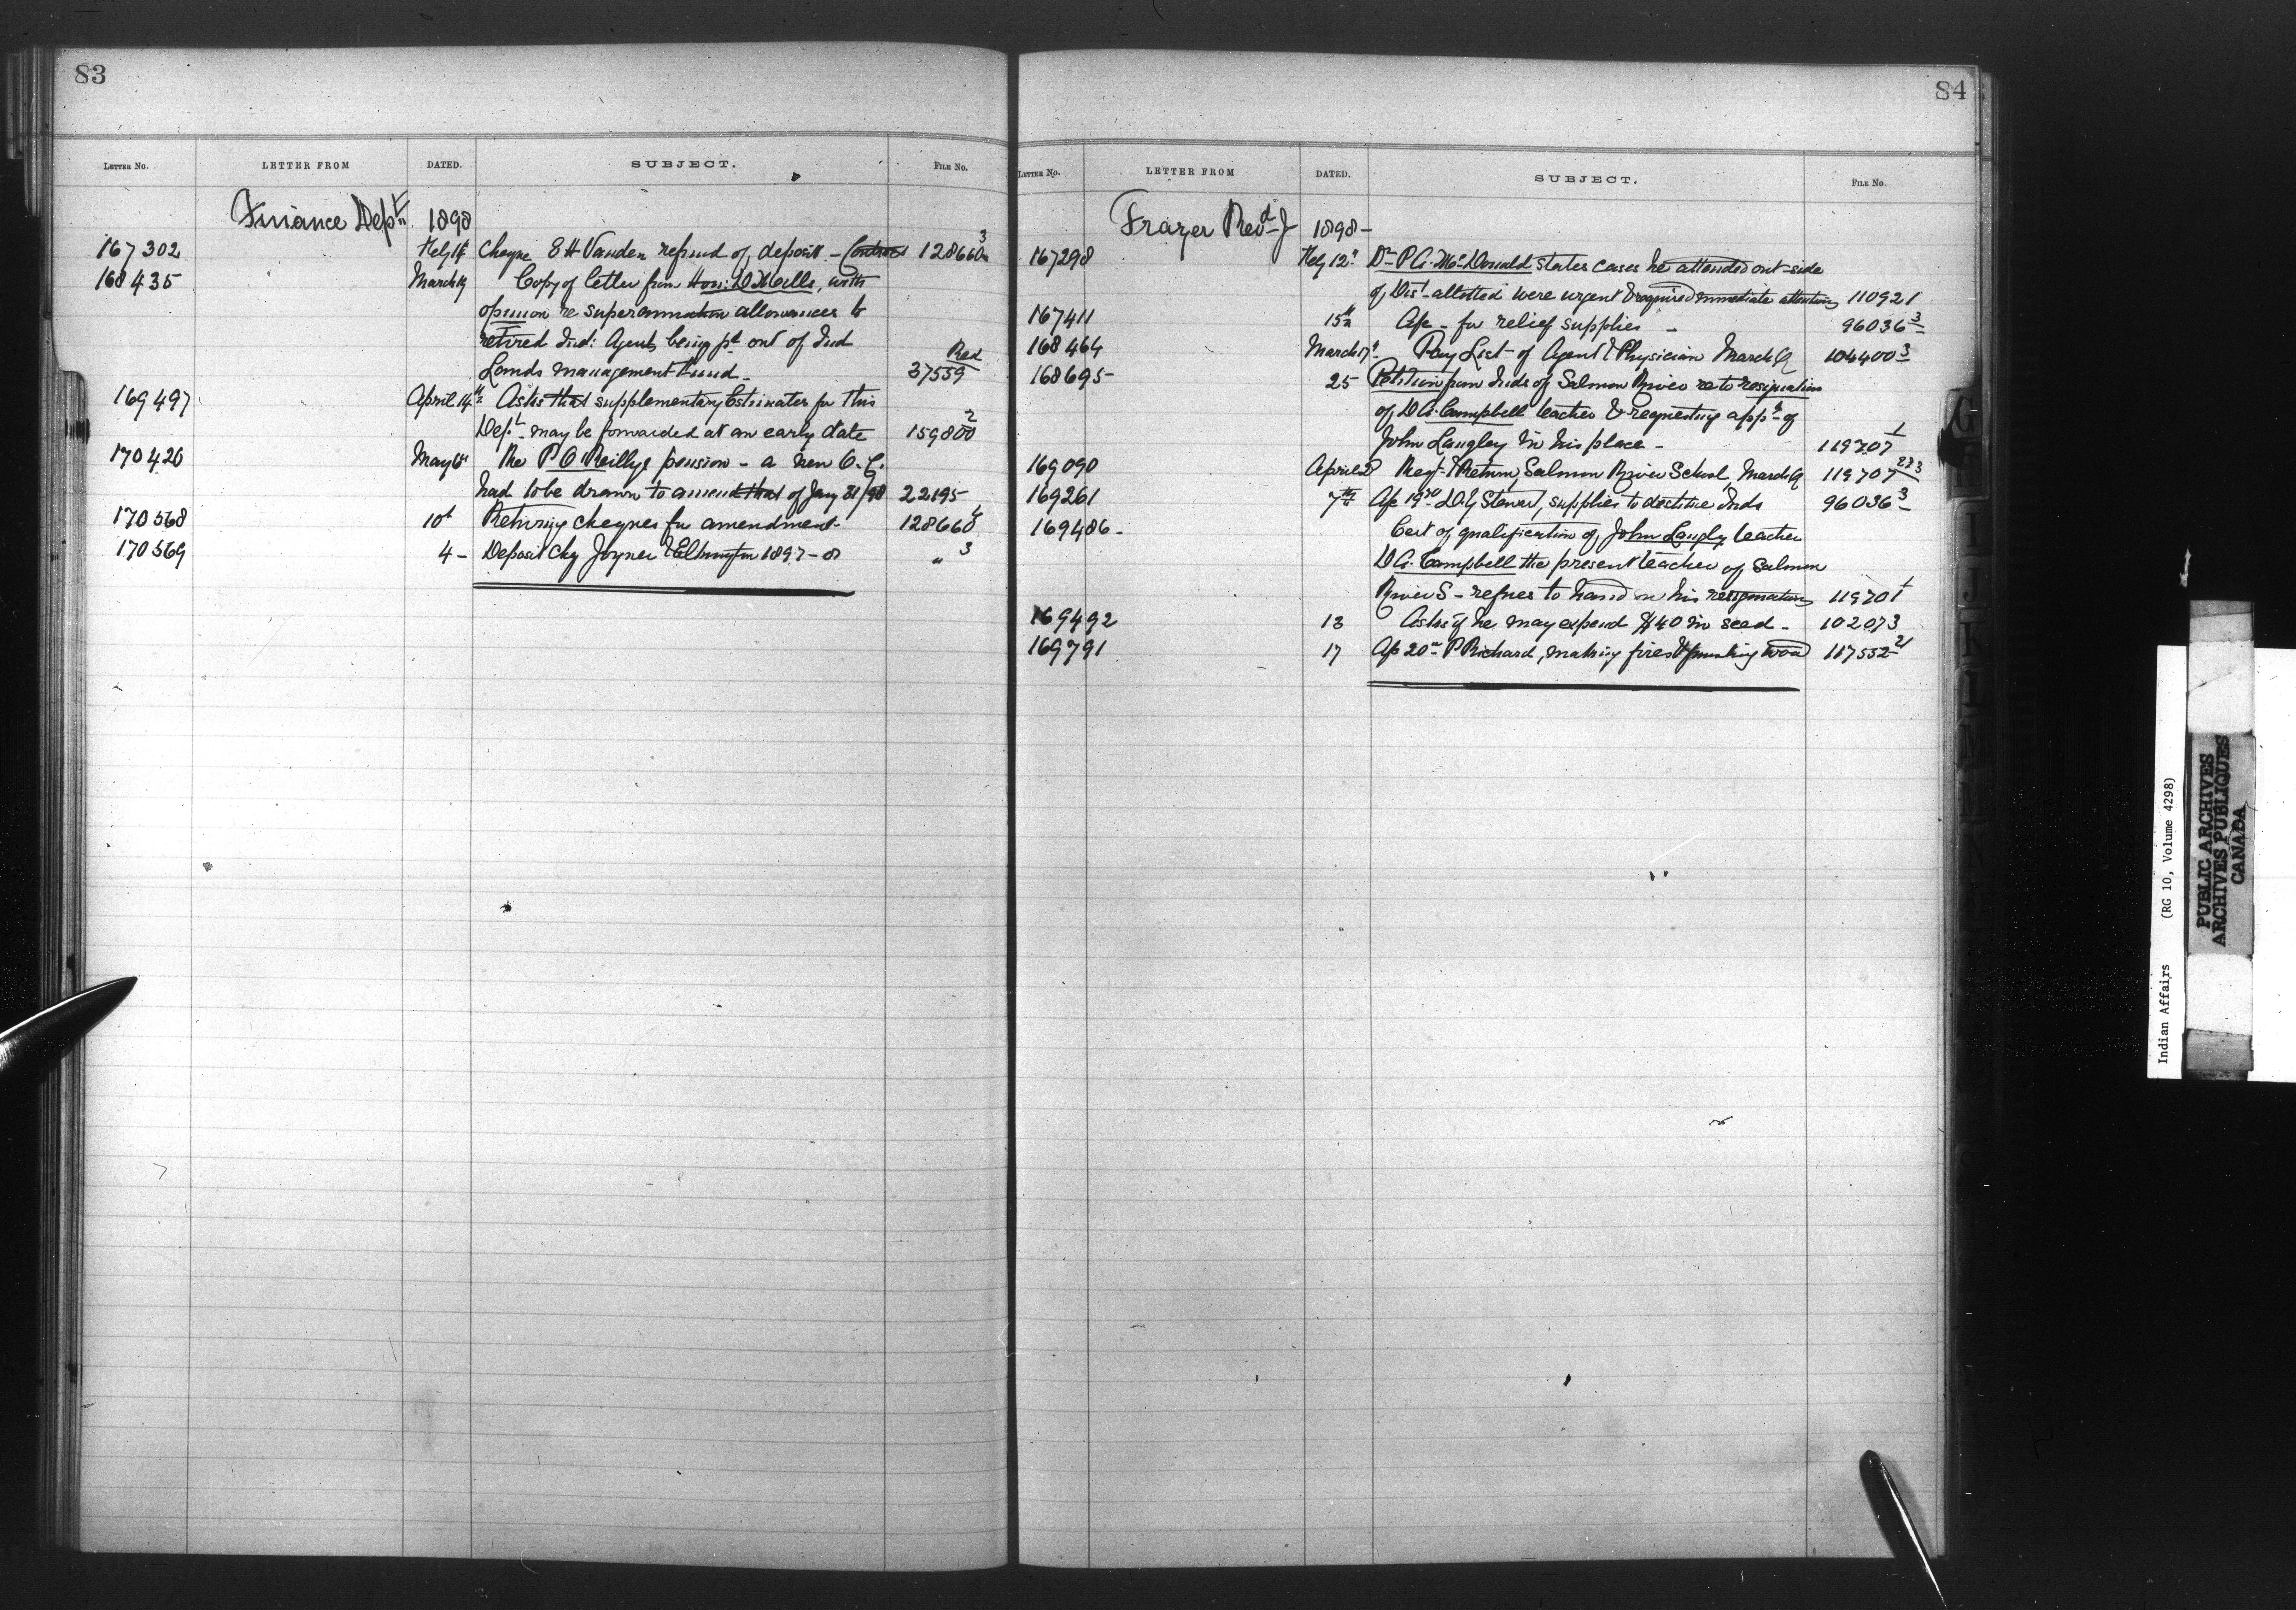 83
LETTER NO. LETTER FROM DATED. SUBJECT. FILE NO.
Finance Dept. 1898
167302 Feby 14 Cheque S H Vanden refund of deposit - Contract 128660 3
168435 March 19 Copy of letter from Hon: D Mills, with
opinion re superannuation allowances to
retired Ind: Agents being pd out of Ind
Lands management Fund - Red 37559
169497 April 14th Asks that supplementary Estimates for this
Dept. may be forwarded at an early date 159800 2
170426 May 6th Re P O'Reillys pension - a new O.C.
had to be drawn to amend that of Jany 31/98 22195
170568 10th Returning cheques for amendment - 128660 4
170569 4 - Deposit chq Joyner & Elkington 1897-8 " 3
84
LETTER NO. LETTER FROM DATED. SUBJECT. FILE NO.
Frazer Revd J 1898 -
167298 Feby 12th Dr P A McDonald states cases he attended out-side
of Dist allotted were urgent & required immediate attention 110921
167411 15th Ap - for relief supplies - 96036 3
168464 March 17th Pay List of Agent & Physician March Q 104400 3
168695 - 25 Petition from Inds of Salmon River re to resignation
of D A Campbell teacher & requesting appt of
John Langley in his place - 119707 1
169090 April 2 Reqt & Return, Salmon River School, March Q 119707 223
169261 7th Ap 1970 D G Stewart, supplies to destitute Inds 96036 3
169486 - Cert of qualification of John Langley teacher
D A Campbell the present teacher of Salmon
River S - refues to hand in his resignation 119707 1
169492 13 Asks if he may expend $40 in seed - 102073
169791 17 Ap 20 P Richard, making fires & wood 117552 21
G I J K L M N
Indian Affairs (RG 10, Volume 4298)
PUBLIC ARCHIVES
ARCHIVES PUBLIQUES
CANADA